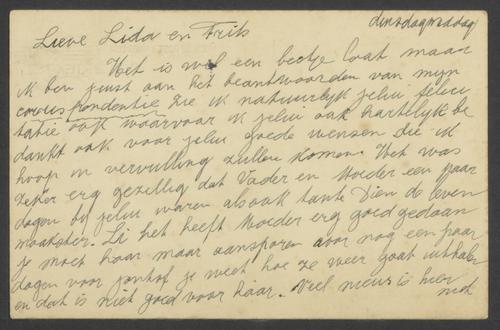 dinsdagmiddag
Lieve Lida en Frits
Het is wel een beetje laat maar
ik ben juist aan het beantwoorden van mijn
correspondentie zie ik natuurlijk jelui felici
tatie ook waarvoor ik jelui ook hartelijk be
dankt ook voor jelui goede wensen die ik
hoop in vervulling zullen komen. Het was
zeker erg gezellig dat Vader en Moeder een paar
dagen bij jelui waren alsook tante Dien de leven
maakster. Li het heeft Moeder erg goed gedaan
je moet haar maar aansporen voor nog een paar
dagen voor je weet hoe ze weer gaat
en dat is niet goed voor haar. Veel nieuws is hier
niet